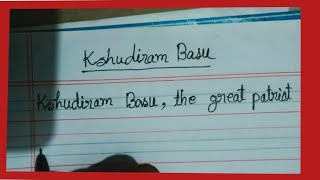 Kshudiram Basu
Kshudiram Basu, the great patriot